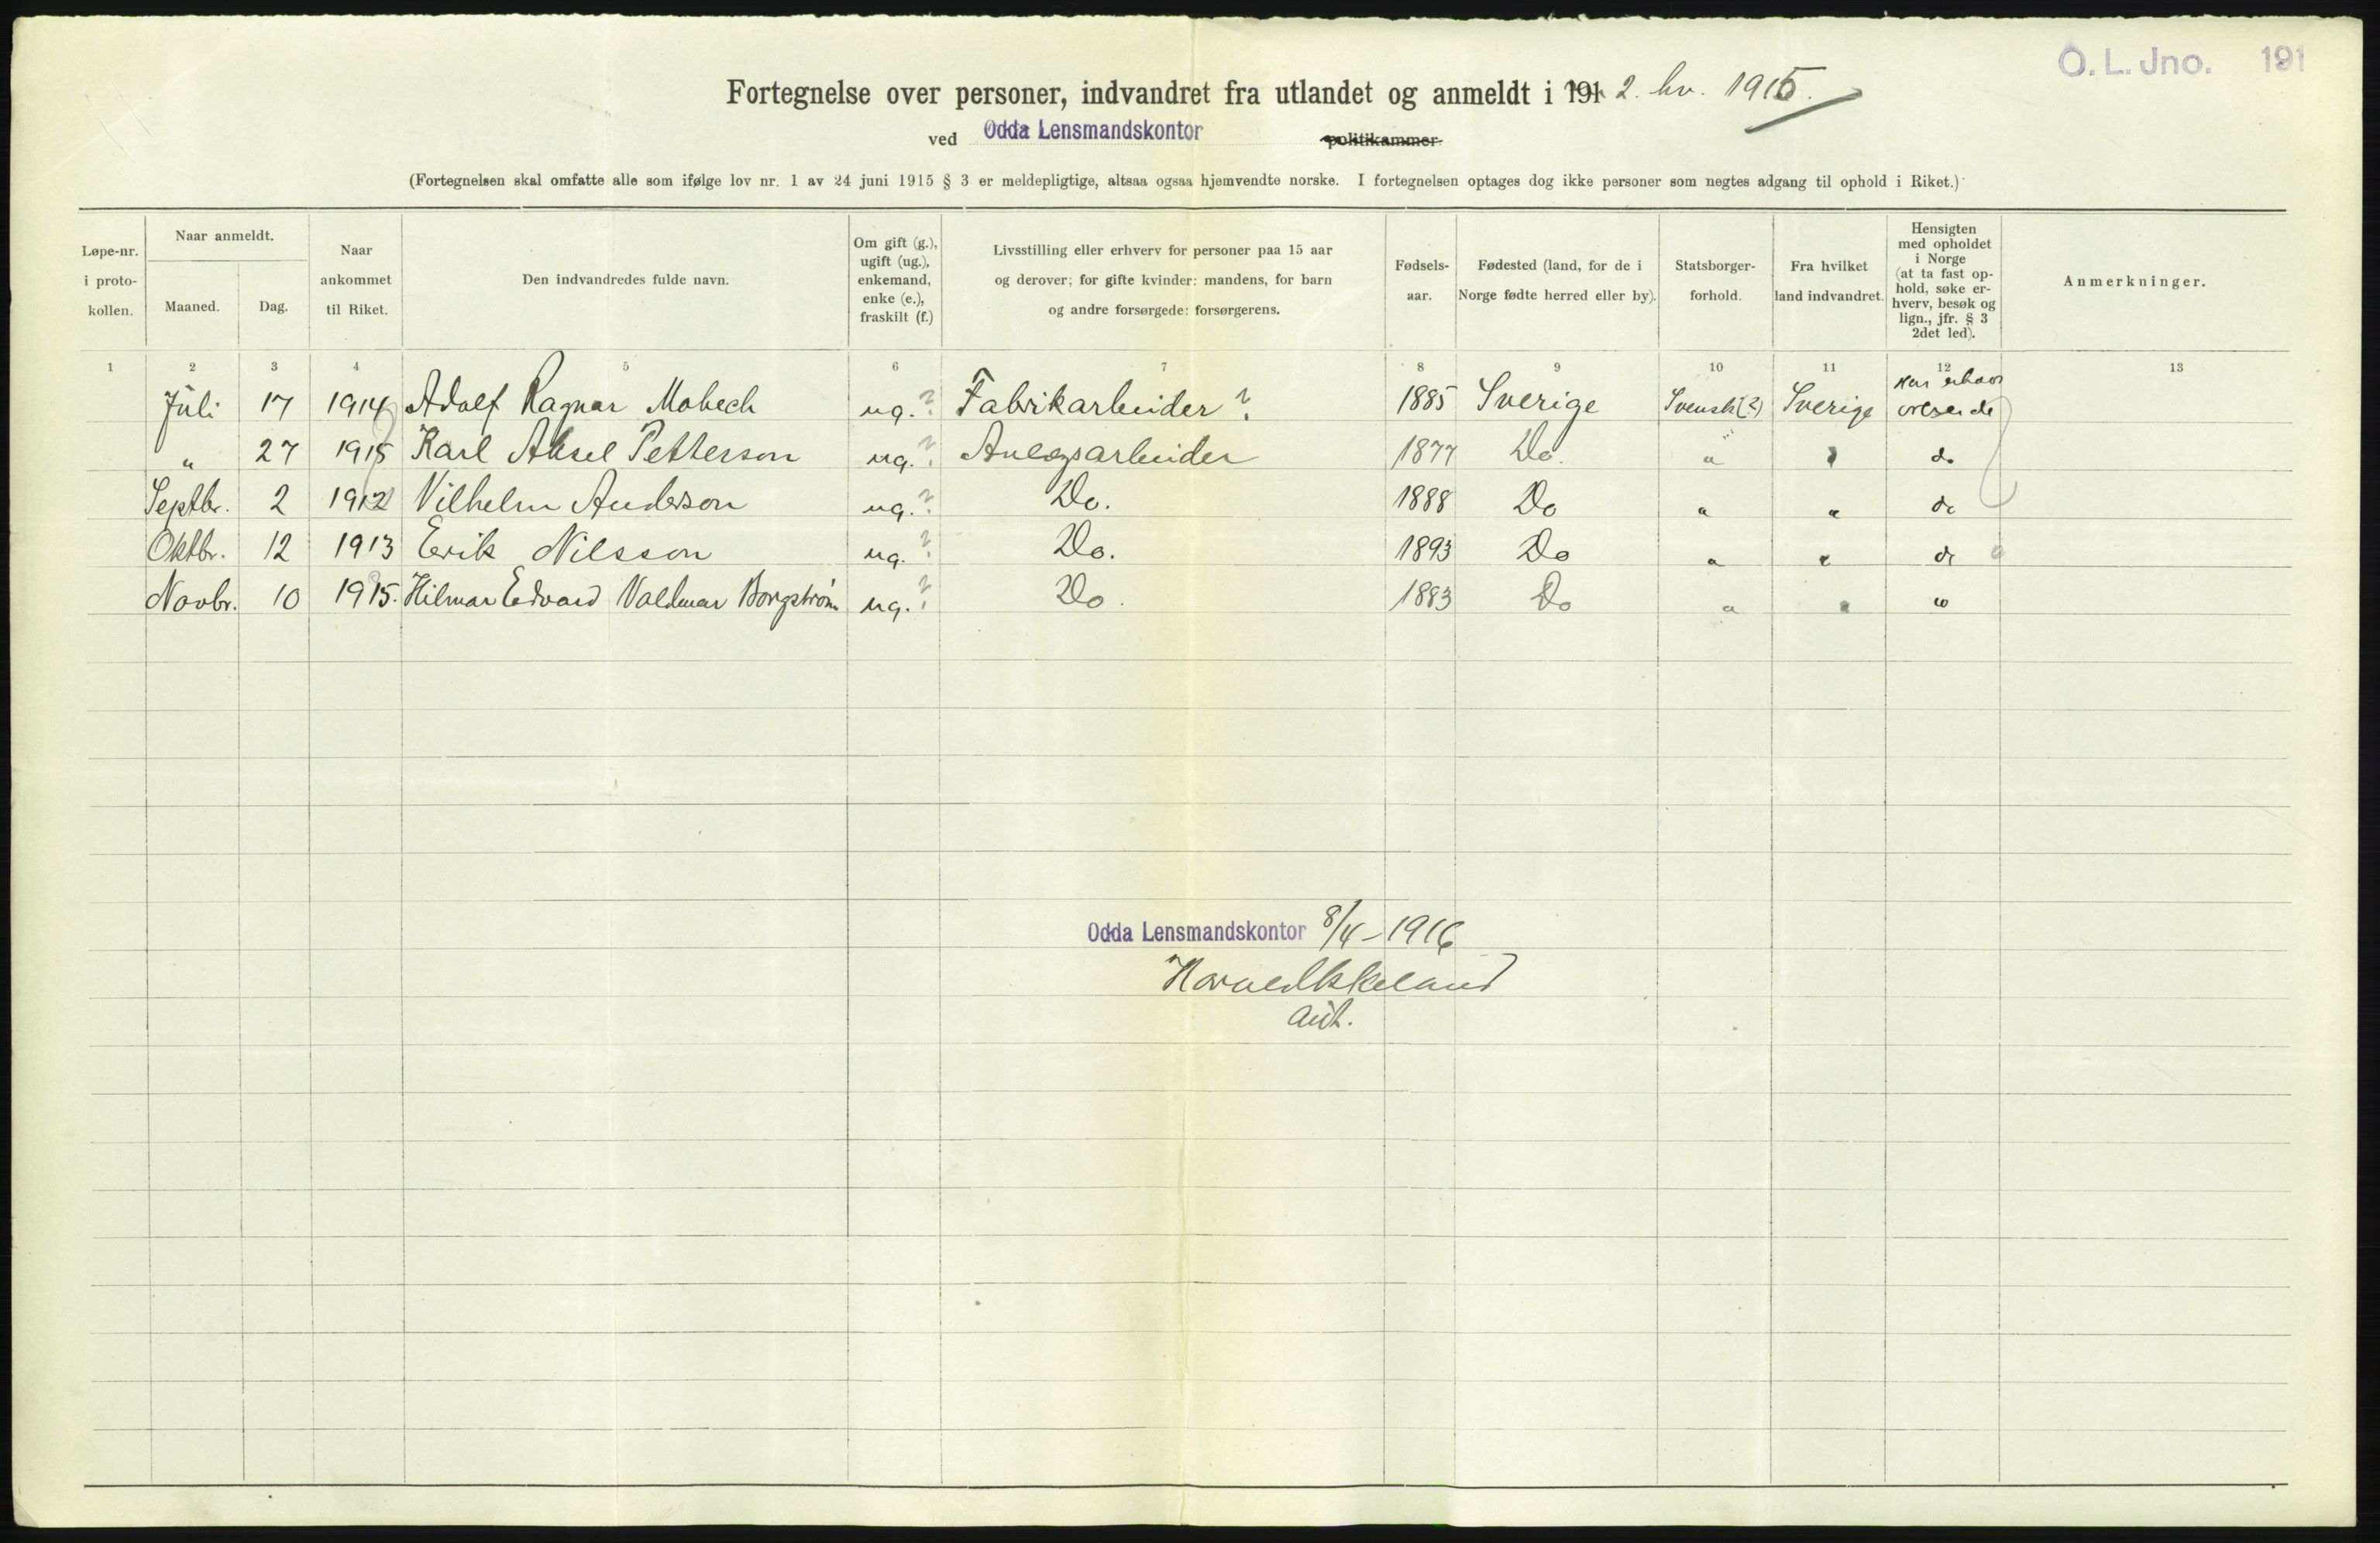 O. L. Jno. 191
Fortegnelse over personer, indvandret fra utlandet og anmeldt i 191 2. hv. 1915.
ved Odda Lensmandskontor politikammer.
(Fortegnelsen skal omfatte alle som ifølge lov nr. 1 av 24 juni 1915 § 3 er meldepligtige, altsaa ogsaa hjemvendte norske. I fortegnelsen optages dog ikke personer som negtes adgang til ophold i Riket.)
Løpe-nr.
i proto-
kollen.
Naar anmeldt.
Maaned. Dag.
Naar
ankommet
til Riket.
Den indvandredes fulde navn.
Om gift (g.),
ugift (ug.),
enkemand,
enke (e.),
fraskilt (f.)
Livsstilling eller erhverv for personer paa 15 aar
og derover; for gifte kvinder: mandens, for barn
og andre forsørgede: forsørgerens.
Fødsels-
aar.
Fødested (land, for de i
Norge fødte herred eller by).
Statsborger-
forhold.
Fra hvilket
land indvandret.
Hensigten
med opholdet
i Norge
(at ta fast op-
hold, søke er-
hverv, besøk og
lign., jfr. § 3
2det led).
Anmerkninger.
1 2 3 4 5 6 7 8 9 10 11 12 13
Juli 17 1914 Adolf Ragnar Mobech ug. ? Fabrikarbeider ? 1885 Sverige Svensk (?) Sverige
" 27 1915 Karl Aksel Petterson ug. ? Anlægsarbeider 1877 Do. " " do
Septbr. 2 1912 Vilhelm Anderson ug. ? Do. 1888 Do " " do
Oktbr. 12 1913 Erik Nilsson ug. ? Do. 1893 Do " " do
Novbr. 10 1915. Hilmar Edvard Valdmar Borgstrøm ug. ? Do. 1883 Do " " "
Odda Lensmandskontor 8/4 - 1916